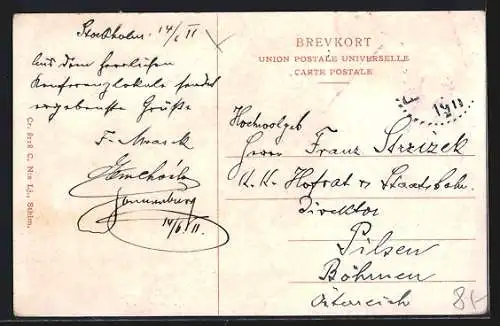 Stockholm 14/6 11
Aus dem herrlichen
Konferenzlokale sendet
ergebenste Grüße
F.
14/6 11.
Cr. 8728 C. Nss Lj., Sthlm.
BREVKORT
UNION POSTALE UNIVERSELLE
CARTE POSTALE
1911
Hochwolgeb
Herrn Franz Strzizek
K. K. Hofrat Staatsbahn
Direktor
Pilsen
Böhmen
Österreich